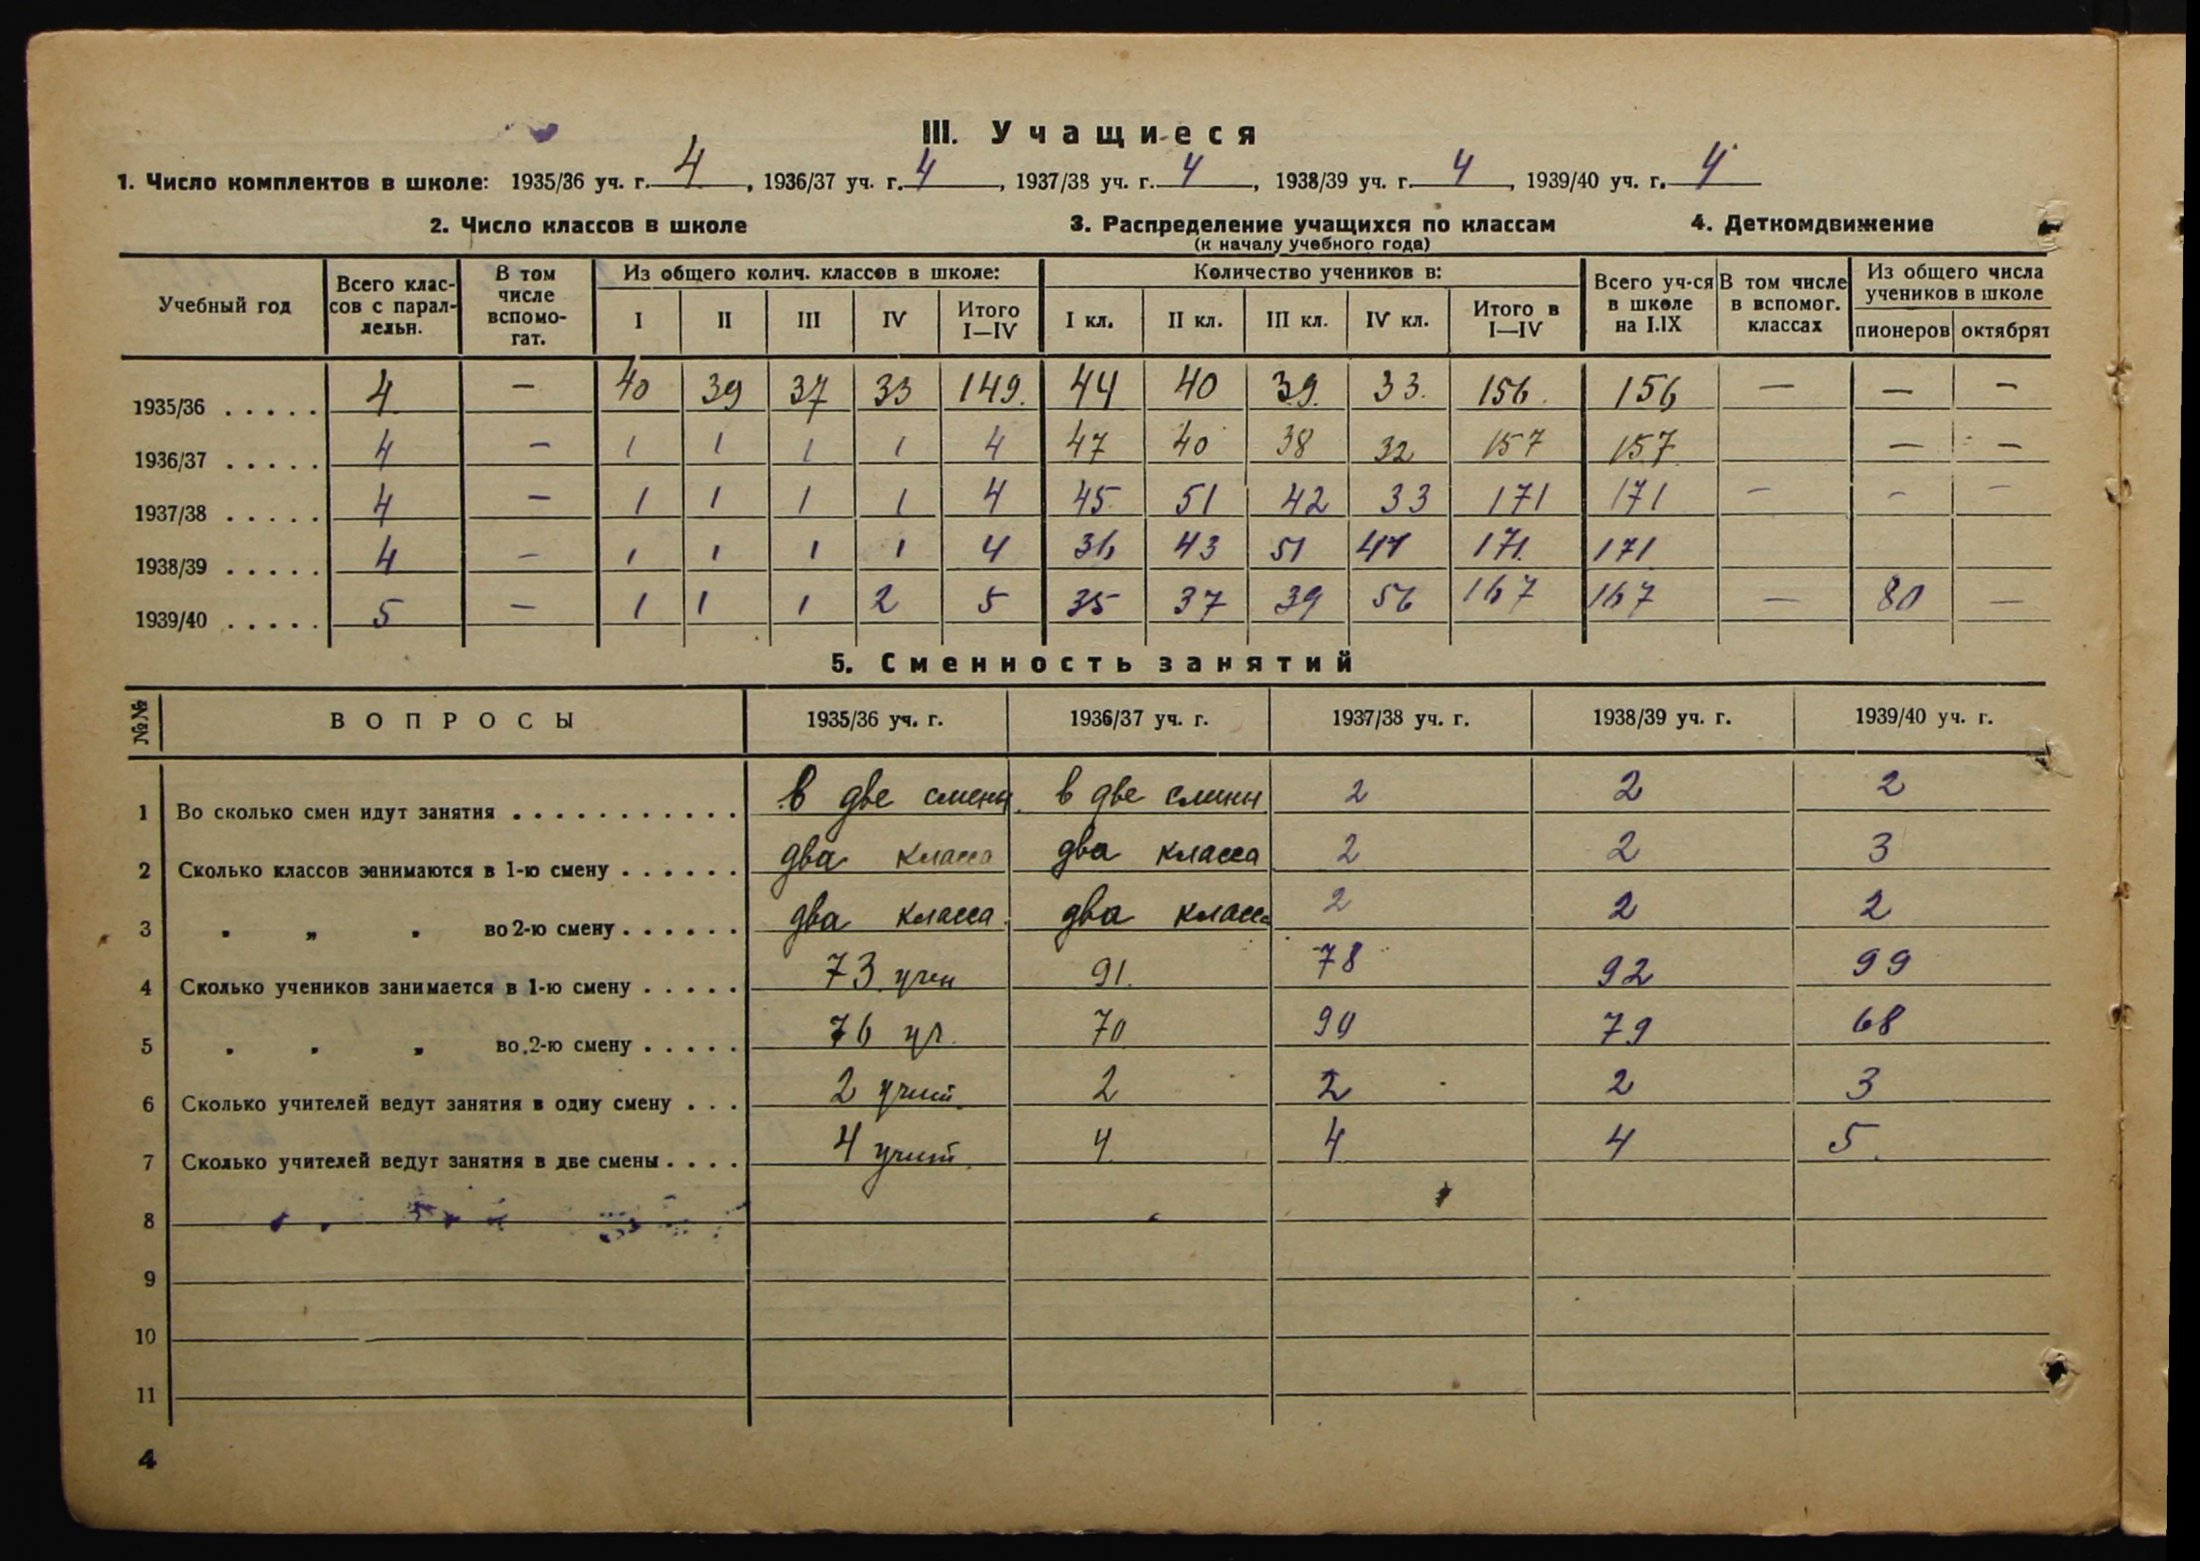 III. Учащиеся
1. Число комплектов в школе: 1935/36 уч. г. 4, 1936/37 уч. г. 4, 1937/38 уч. г. 4, 1938/39 уч. г. 4, 1939/40 уч. г. 4
2. Число классов в школе 3. Распределение учащихся по классам 4. Деткомдвижение
(к началу учебного года)
Учебный год Всего классов с параллельн. В том числе вспомогат. Из общего колич. классов в школе: I II III IV Итого I—IV Количество учеников в: I кл. II кл. III кл. IV кл. Итого в I—IV Всего уч-ся в школе на I.IX В том числе в вспомог. классах Из общего числа учеников в школе пионеров октябрят
1935/36 . . . . . 4 — 40 39 37 33 149. 44 40 39. 33. 156. 156 — — —
1936/37 . . . . . 4 — 1 1 1 1 4 47 40 38 32 157 157 — —
1937/38 . . . . . 4 — 1 1 1 1 4 45 51 42 33 171 171 — — —
1938/39 . . . . . 4 — 1 1 1 1 4 36 43 51 41 171. 171
1939/40 . . . . . 5 — 1 1 1 2 5 35 37 39 56 167 167 — 80 —
5. Сменность занятий
№№ ВОПРОСЫ 1935/36 уч. г. 1936/37 уч. г. 1937/38 уч. г. 1938/39 уч. г. 1939/40 уч. г.
1 Во сколько смен идут занятия . . . . . . . . . . . в две смены в две смены 2 2 2
2 Сколько классов занимаются в 1-ю смену . . . . . . два класса два класса 2 2 3
3 „ „ „ во 2-ю смену . . . . . . два класса два класса 2 2 2
4 Сколько учеников занимается в 1-ю смену . . . . . 73 учен 91. 78 92 99
5 „ „ „ во 2-ю смену . . . . . 76 уч. 70 90 79 68
6 Сколько учителей ведут занятия в одну смену . . . 2 учит. 2 2 2 3
7 Сколько учителей ведут занятия в две смены . . . . 4 учит. 4 4 4 5.
8
9
10
11
4